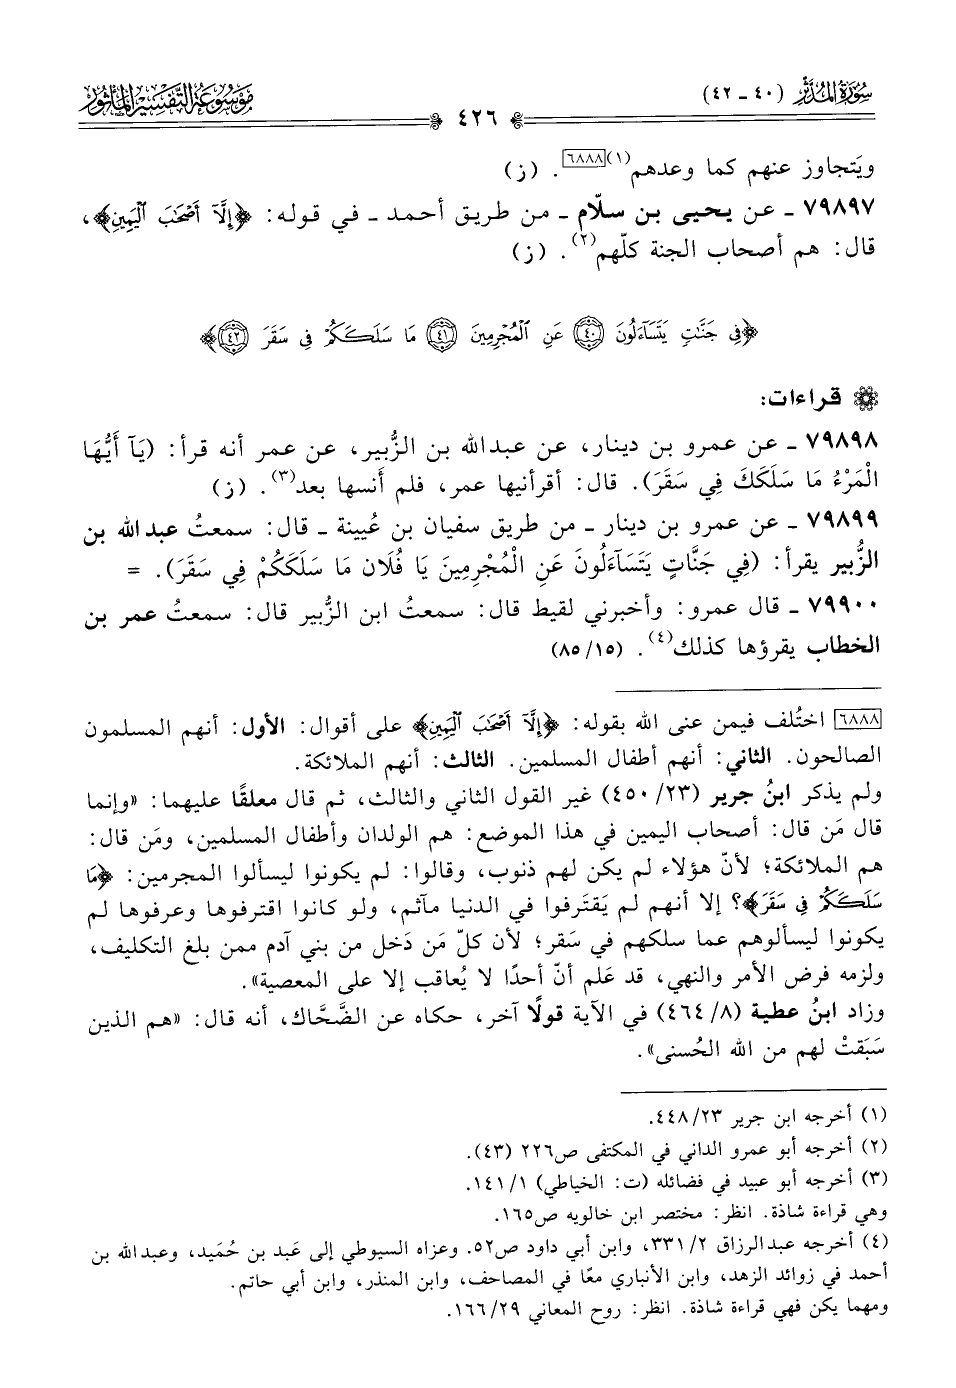 سُورَةُ المُدَّثِّر (٤٠ - ٤٢)
٤٢٦
مَوْسُوعَةُ التَّفْسِيرِ المَأْثُورِ
ويَتجاوز عنهم كما وعدهم(١)[٦٨٨٨]. (ز)
٧٩٨٩٧ ـ عن يحيى بن سلّام ـ من طريق أحمد ـ في قوله: ﴿إِلَّآ أَصْحَٰبَ ٱلْيَمِينِ﴾،
قال: هم أصحاب الجنة كلّهم(٢). (ز)
﴿فِى جَنَّٰتٍ يَتَسَآءَلُونَ ٤٠ عَنِ ٱلْمُجْرِمِينَ ٤١ مَا سَلَكَكُمْ فِى سَقَرَ ٤٢﴾
قراءات:
٧٩٨٩٨ ـ عن عمرو بن دينار، عن عبدالله بن الزُّبير، عن عمر أنه قرأ: (يَآ أَيُّهَا
الْمَرْءُ مَا سَلَكَكَ فِي سَقَرَ). قال: أقرأنيها عمر، فلم أَنسها بعد(٣). (ز)
٧٩٨٩٩ ـ عن عمرو بن دينار ـ من طريق سفيان بن عُيينة ـ قال: سمعتُ عبدالله بن
الزُّبير يقرأ: (فِي جَنَّاتٍ يَتَسَآءَلُونَ عَنِ الْمُجْرِمِينَ يَا فُلَان مَا سَلَكَكُمْ فِي سَقَرَ). =
٧٩٩٠٠ ـ قال عمرو: وأخبرني لقيط قال: سمعتُ ابن الزُّبير قال: سمعتُ عمر بن
الخطاب يقرؤها كذلك(٤). (١٥/ ٨٥)
[٦٨٨٨] اختُلف فيمن عنى الله بقوله: ﴿إِلَّآ أَصْحَٰبَ ٱلْيَمِينِ﴾ على أقوال: الأول: أنهم المسلمون
الصالحون. الثاني: أنهم أطفال المسلمين. الثالث: أنهم الملائكة.
ولم يذكر ابنُ جرير (٢٣/ ٤٥٠) غير القول الثاني والثالث، ثم قال معلقًا عليهما: «وإنما
قال مَن قال: أصحاب اليمين في هذا الموضع: هم الولدان وأطفال المسلمين، ومَن قال:
هم الملائكة؛ لأنّ هؤلاء لم يكن لهم ذنوب، وقالوا: لم يكونوا ليسألوا المجرمين: ﴿مَا
سَلَكَكُمْ فِى سَقَرَ﴾؟ إلا أنهم لم يَقتَرفوا في الدنيا مآثم، ولو كانوا اقترفوها وعرفوها لم
يكونوا ليسألوهم عما سلكهم في سَقر؛ لأن كلّ مَن دَخل من بني آدم ممن بلغ التكليف،
ولزمه فرض الأمر والنهي، قد عَلم أنّ أحدًا لا يُعاقب إلا على المعصية».
وزاد ابنُ عطية (٨/ ٤٦٤) في الآية قولًا آخر، حكاه عن الضَّحَّاك، أنه قال: «هم الذين
سَبَقتْ لهم من الله الحُسنى».
(١) أخرجه ابن جرير ٢٣/ ٤٤٨.
(٢) أخرجه أبو عمرو الداني في المكتفى ص٢٢٦ (٤٣).
(٣) أخرجه أبو عبيد في فضائله (ت: الخياطي) ١/ ١٤١.
وهي قراءة شاذة. انظر: مختصر ابن خالويه ص١٦٥.
(٤) أخرجه عبدالرزاق ٢/ ٣٣١، وابن أبي داود ص٥٢. وعزاه السيوطي إلى عَبد بن حُمَيد، وعبدالله بن
أحمد في زوائد الزهد، وابن الأنباري معًا في المصاحف، وابن المنذر، وابن أبي حاتم.
ومهما يكن فهي قراءة شاذة. انظر: روح المعاني ٢٩/ ١٦٦.